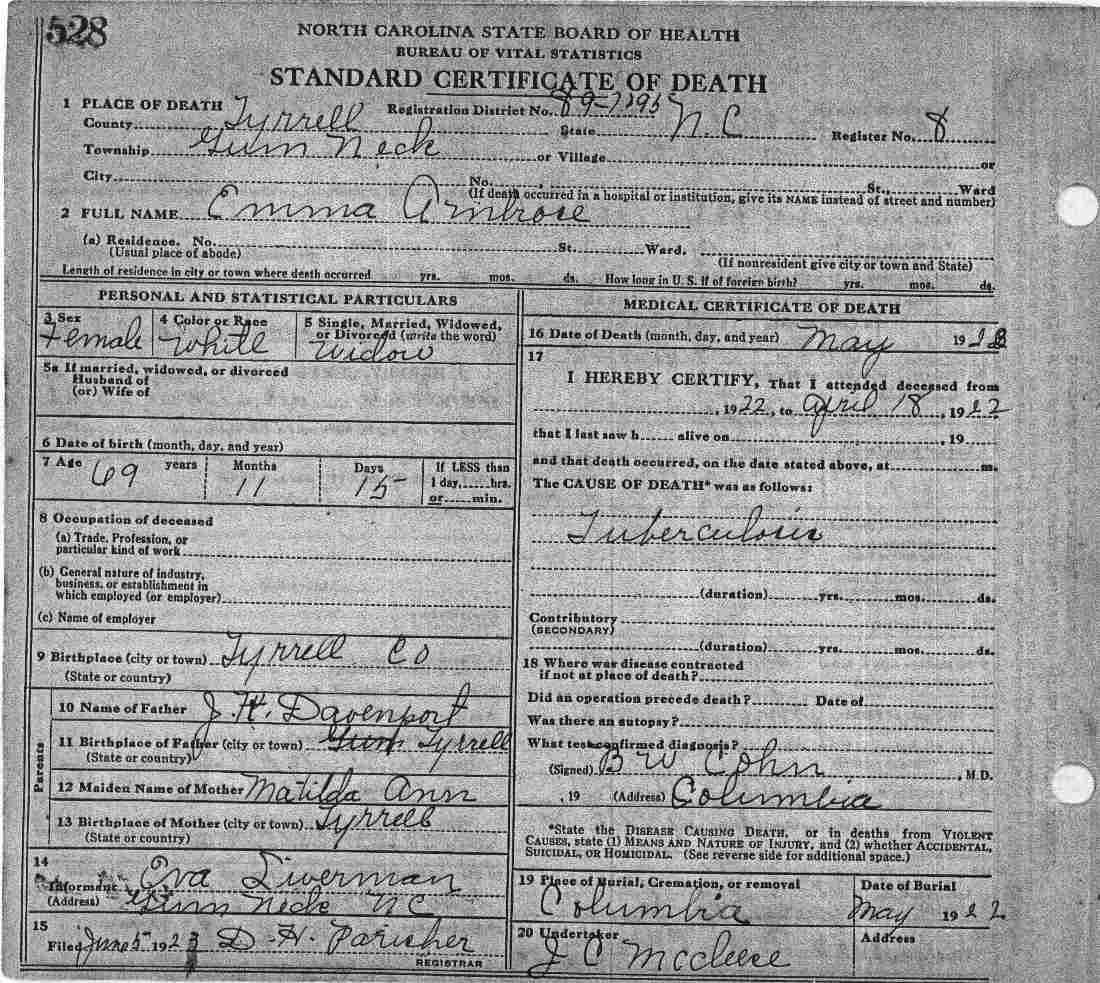 528
NORTH CAROLINA STATE BOARD OF HEALTH
BUREAU OF VITAL STATISTICS
STANDARD CERTIFICATE OF DEATH
1 PLACE OF DEATH Registration District No. 89-
County Tyrrell State N.C Register No. 8
Township Gum Neck or Village or
City No. St., Ward
(If death occurred in a hospital or institution, give its NAME instead of street and number)
2 FULL NAME Emma Ambrose
(a) Residence. No. St. Ward.
(Usual place of abode) (If nonresident give city or town and State)
Length of residence in city or town where death occurred yrs. mos. ds. How long in U. S. if of foreign birth? yrs. mos. ds.
PERSONAL AND STATISTICAL PARTICULARS
3 Sex 4 Color or Race 5 Single, Married, Widowed,
or Divorced (write the word)
Female White Widow
5a If married, widowed, or divorced
Husband of
(or) Wife of
6 Date of birth (month, day, and year)
7 Age years Months Days If LESS than
69 11 15 1 day, hrs.
or min.
8 Occupation of deceased
(a) Trade, Profession, or
particular kind of work
(b) General nature of industry,
business, or establishment in
which employed (or employer)
(c) Name of employer
9 Birthplace (city or town) Tyrrell Co
(State or country)
Parents
10 Name of Father J. H. Davenport
11 Birthplace of Father (city or town) Gum Tyrrell
(State or country)
12 Maiden Name of Mother Matilda Ann
13 Birthplace of Mother (city or town) Tyrrell
(State or country)
14
Informant Ova Liverman
(Address) Gum Neck NC
15
Filed June 5 192 D. H. Parisher
REGISTRAR
MEDICAL CERTIFICATE OF DEATH
16 Date of Death (month, day, and year) May 19
17
I HEREBY CERTIFY, That I attended deceased from
, 1922, to April 18, 1922
that I last saw h alive on , 19
and that death occurred, on the date stated above, at m.
The CAUSE OF DEATH* was as follows:
Tuberculosis
(duration) yrs. mos. ds.
Contributory
(SECONDARY)
(duration) yrs. mos. ds.
18 Where was disease contracted
if not at place of death?
Did an operation precede death? Date of
Was there an autopsy?
What test confirmed diagnosis?
(Signed) B W Cohn , M.D.
, 19 (Address) Columbia
*State the DISEASE CAUSING DEATH, or in deaths from VIOLENT
CAUSES, state (1) MEANS AND NATURE OF INJURY, and (2) whether ACCIDENTAL,
SUICIDAL, OR HOMICIDAL. (See reverse side for additional space.)
19 Place of Burial, Cremation, or removal Date of Burial
Columbia May 1922
20 Undertaker Address
J C McCleese